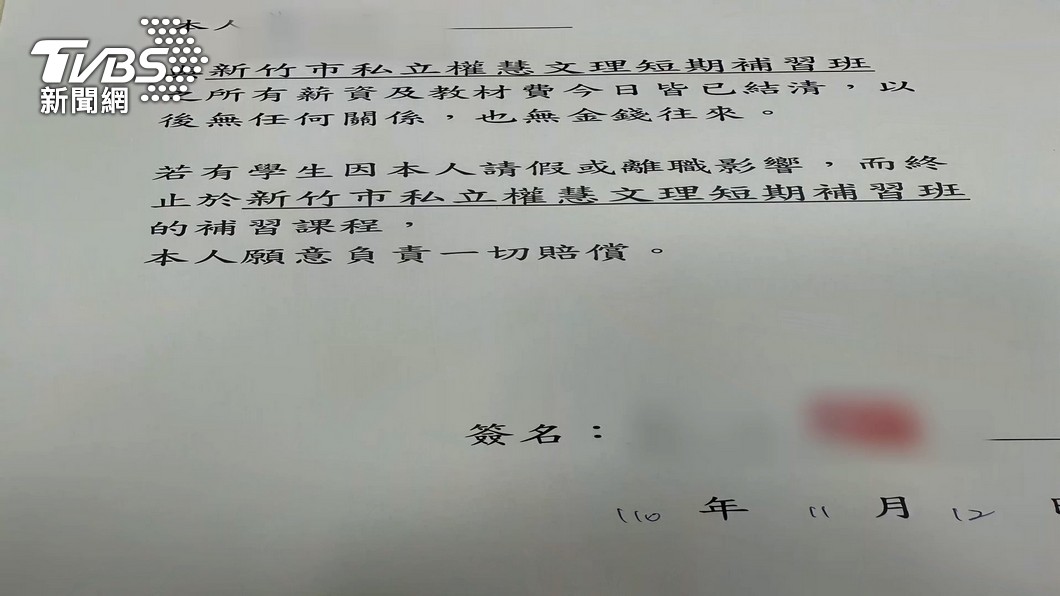 本人
TVBS
新聞網
新竹市私立權慧文理短期補習班
之所有薪資及教材費今日皆已結清，以
後無任何關係，也無金錢往來。
若有學生因本人請假或離職影響，而終
止於新竹市私立權慧文理短期補習班
的補習課程，
本人願意負責一切賠償。
簽名：
110 年 11 月 12 日